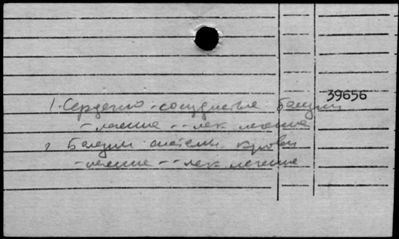 39656
1. Сердечно-сосудистые болезни
- лечение -- лек. лечение
2 Болезни системы крови
- лечение -- лек лечение